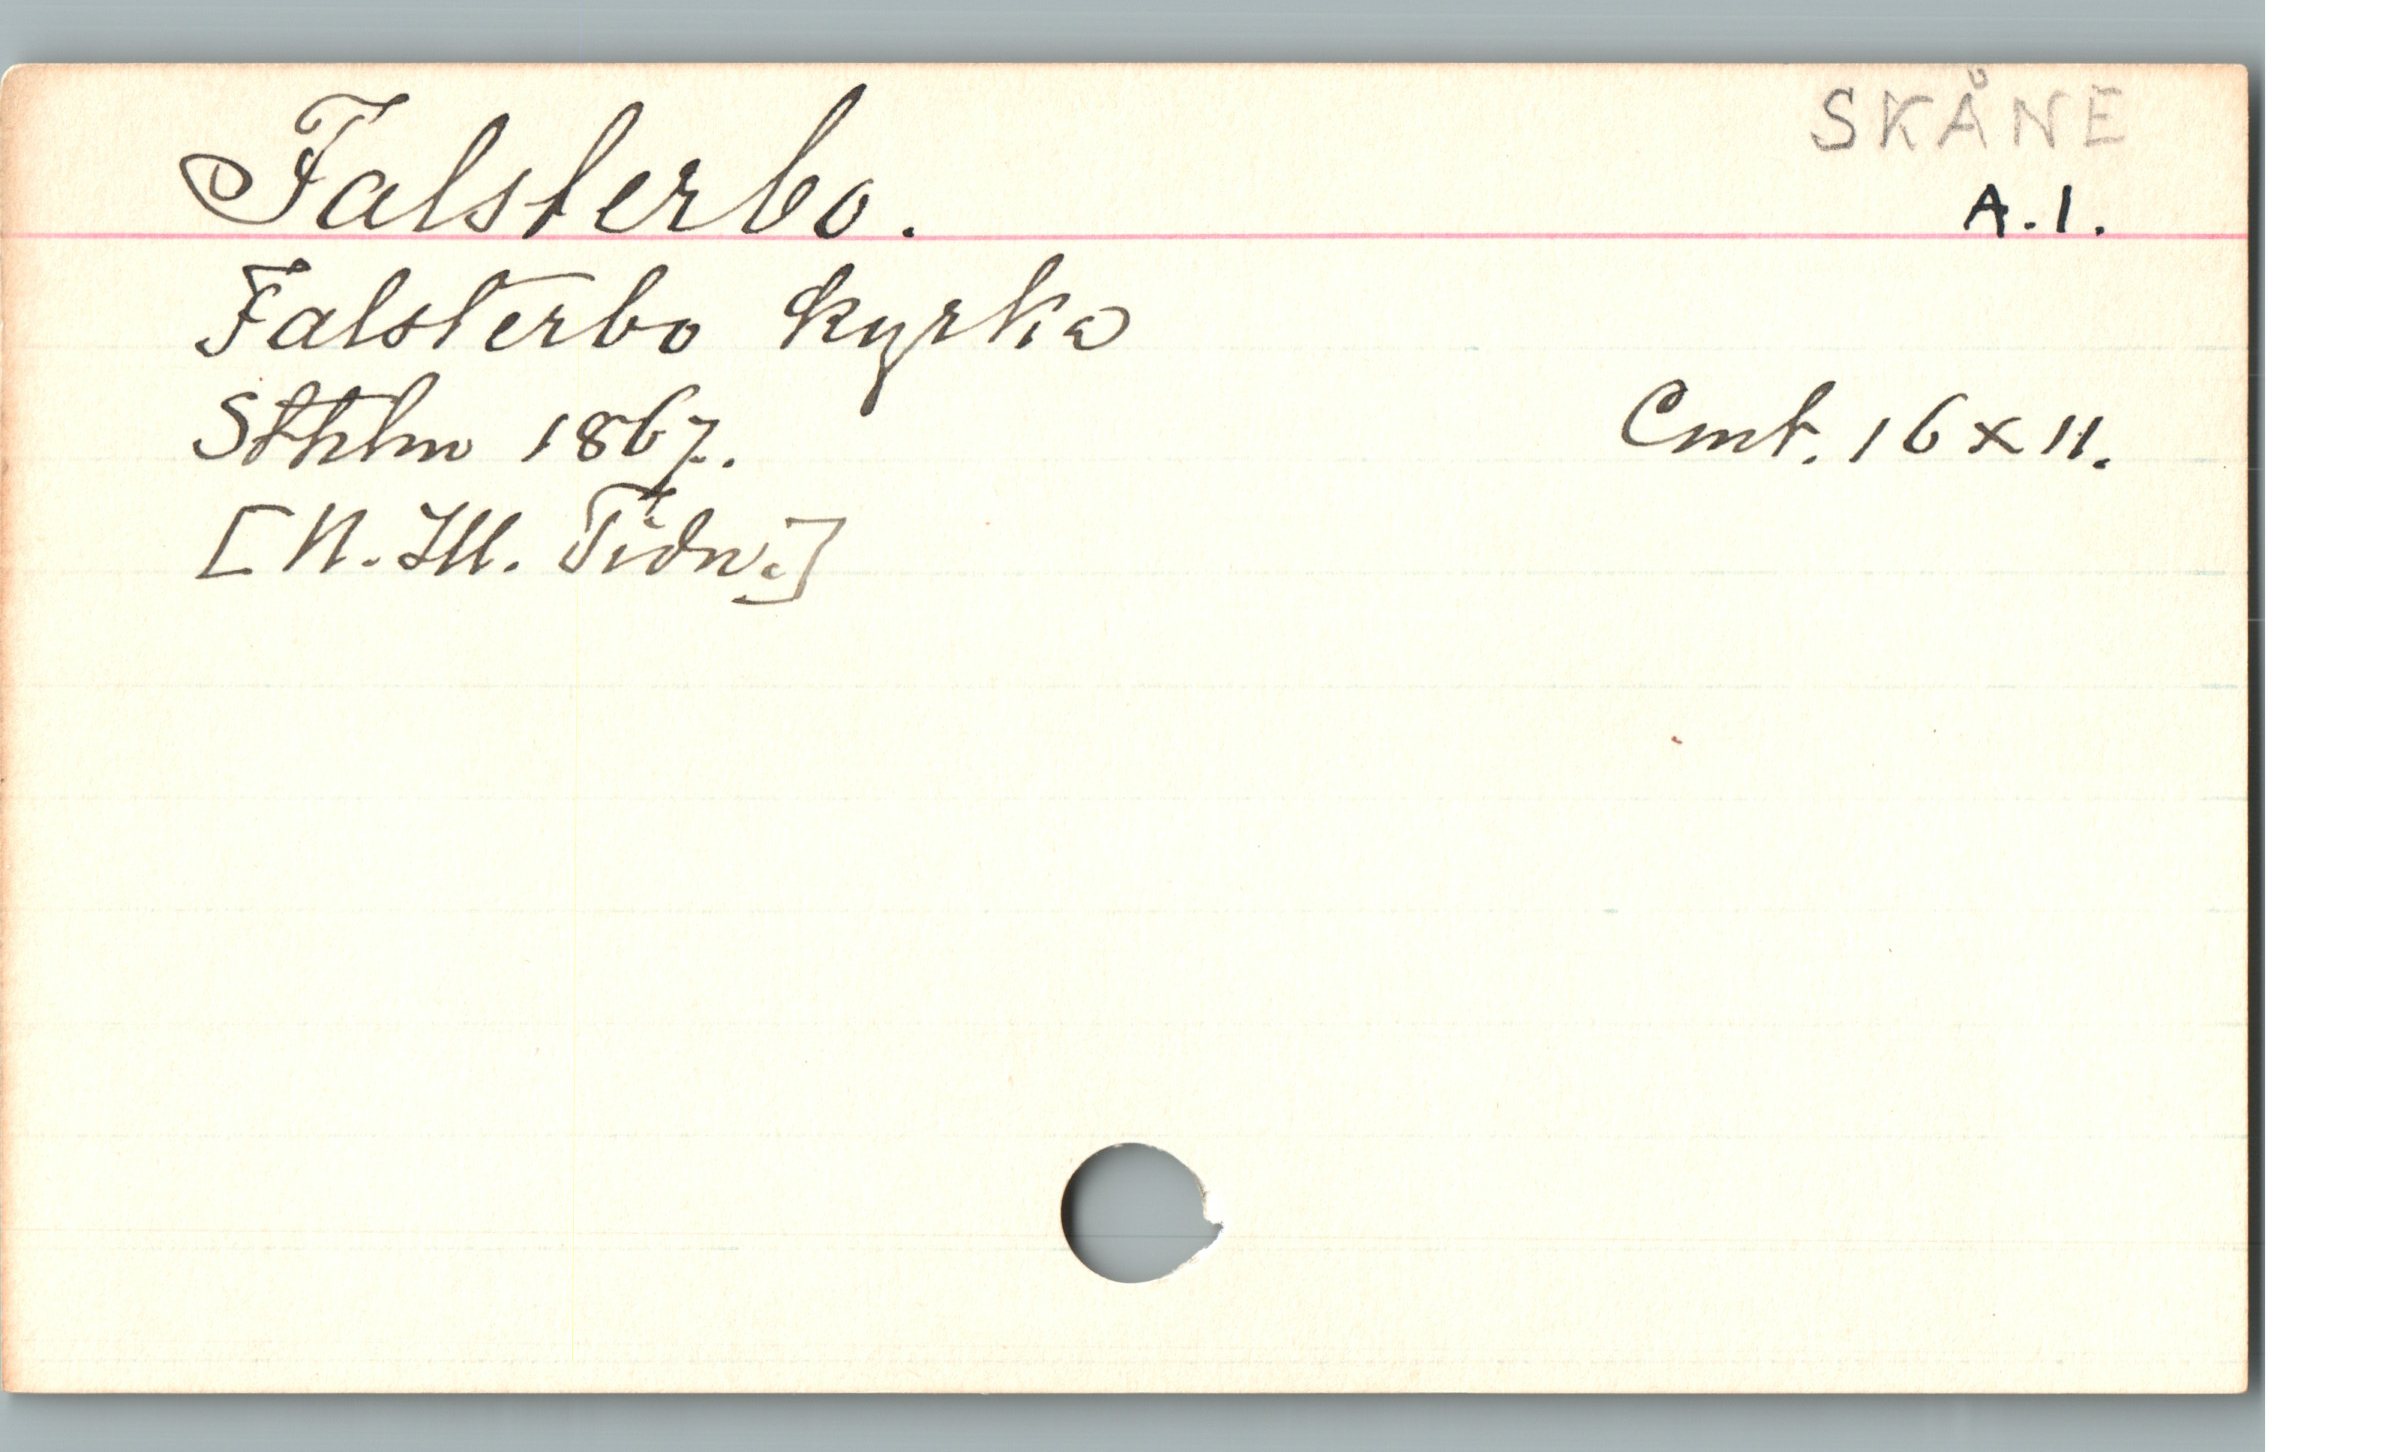 SKÅNE
Falsterbo. A.1.
Falsterbo kyrka
Sthlm 1867. Cmt. 16 x 11.
[N. Ill. Tidn.]